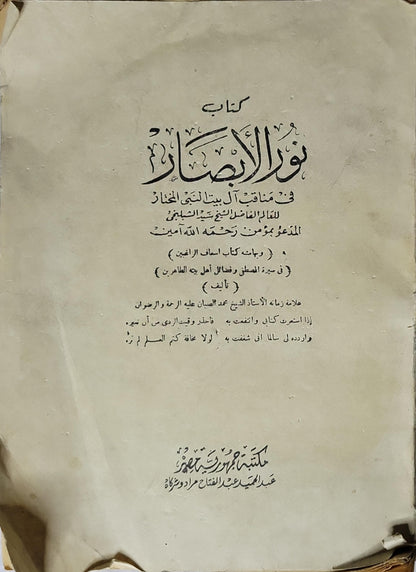 كتاب
نور الأبصار
في مناقب آل بيت النبي المختار
للعالم الفاضل الشيخ سيد الشبلنجي
المدعو بمؤمن رحمه الله آمين
( وبهامشه كتاب اسعاف الراغبين )
( في سيرة المصطفى وفضائل أهل بيته الطاهرين )
( تأليف )
علامة زمانه الأستاذ الشيخ محمد الصبان عليه الرحمة والرضوان
إذا استعرت كتابي وانتفعت به فاحذر وقيت الردى من أن تغيره
واردده لي سالما اني شغفت به لولا مخافة كتم العلم لم تره
مكتبة جمهورية مصر
عبد الحميد عبد الفتاح مراد وشركاه